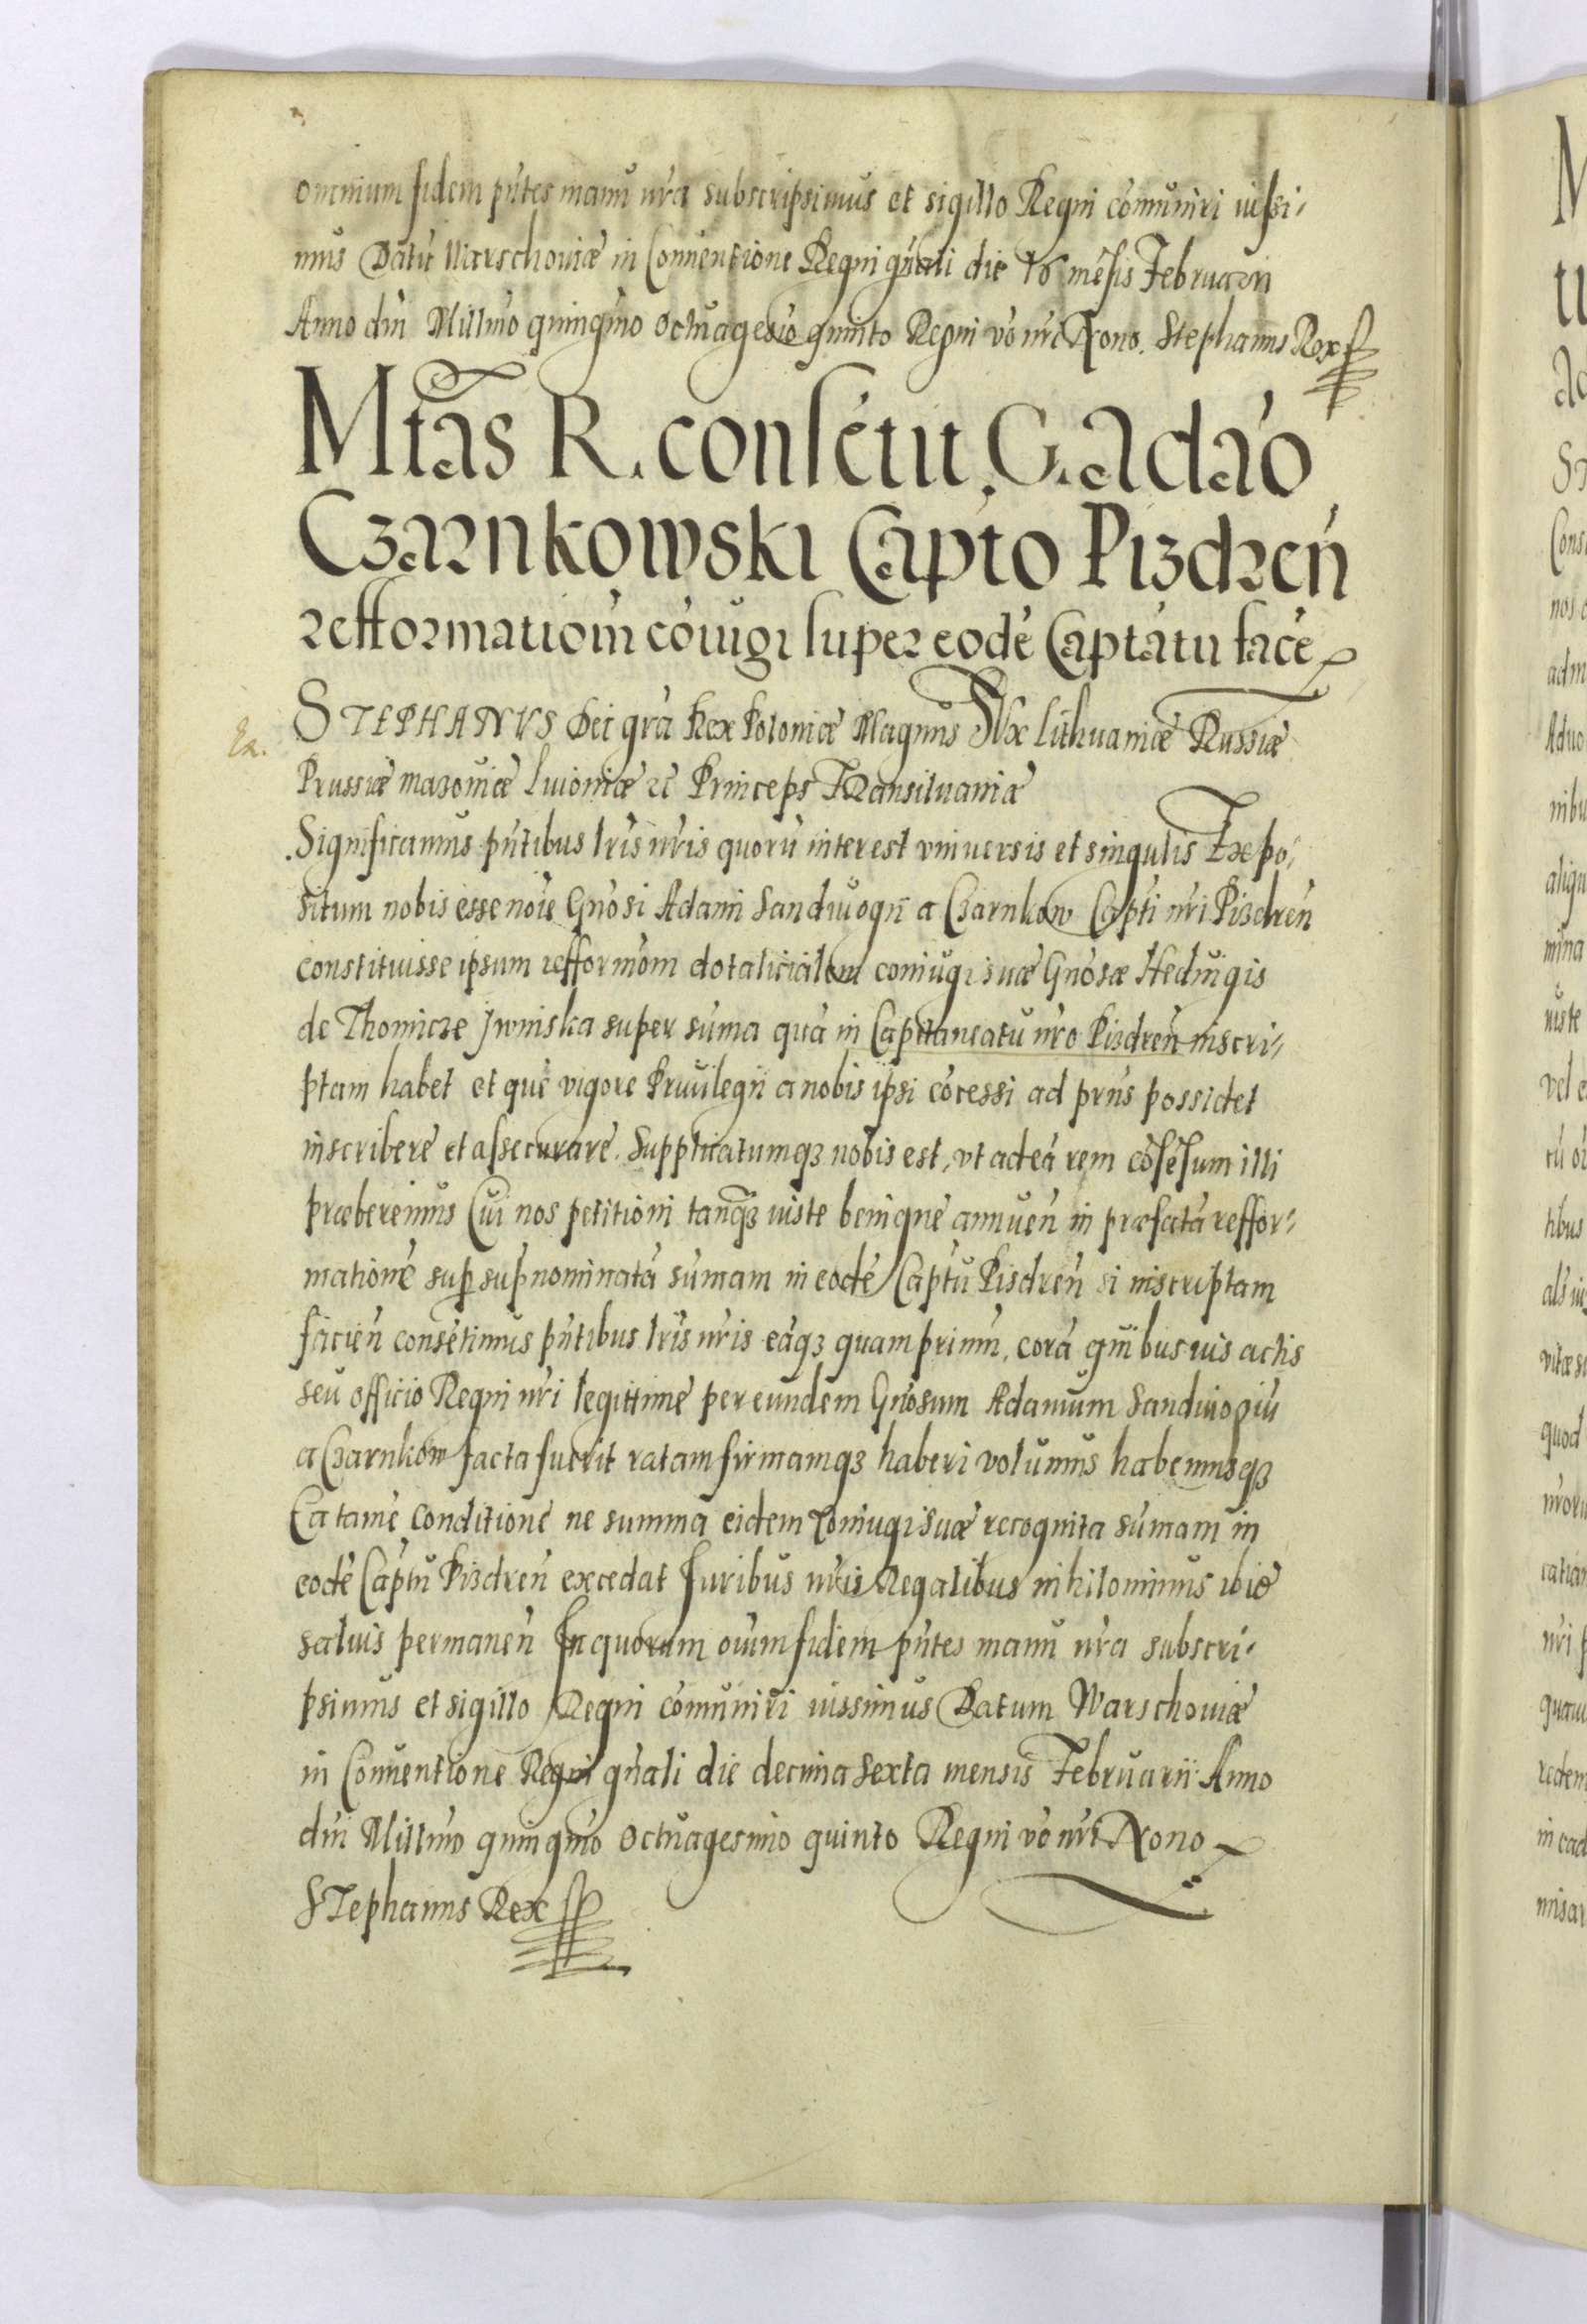 omnium fidem pn̄tes manu nr̄a subscripsimus et sigillo Regni com̄uniri iussi-
mus Datū Warschoviæ in Conventione Regni gn̄ali die 16 mēsis Februarii
Anno dn̄i Millm̄o quingm̄o Octuagesio quinto Regni vō nr̄i Nono. Stephanus Rex
Mtas R. consētit G. Adāo
Czarnkowski Capto Pizdreń
refformationī cōiugi super eodē Captātu facē
STEPHANUS Dei grā Rex Poloniæ Magnus Dux Lithuaniæ Russiæ
Ex.
Prussiæ mazoviæ Livoniæ ꝛc Princeps Transilvaniæ
Significamus pn̄tibus lr̄is nr̄is quorū interest vniversis et singulis Expo-
situm nobis esse noīe Gnōsi Adami Sandivogii a Czarnkow Capti nr̄i Pizdreń
constituisse ipsum refformōm dotalicialem coniugi suæ Gnōsæ Hedvigis
de Thomicze Jwniska super sūma quā in Capitaneatu nr̄o Pizdreń inscri-
ptam habet et quē vigore Privilegii a nobis ipsi cōcessi ad prn̄s possidet
inscribere et assecurare. Supplicatumqꝫ nobis est, vt ad eā rem cōsēsum illi
præberemus Cui nos petitioni tanqꝫ iuste benigne annueń in præfatā reffor-
mationē sup̱ sup̱nominatā sūmam in eodē Captū Pisdreń si inscriptam
facień consētimus pn̄tibus lr̄is nr̄is eāqꝫ quamprimū, corā quibusuis actis
seu officio Regni nr̄i legittime per eundem Gnōsum Adamum Sandivogiū
a Czarnkow facta fuerit ratam firmamqꝫ haberi volumus habemusqꝫ
Ea tamē conditione ne summa eidem Coniugi suæ recognita sūmam in
eodē Captū Pizdreń excedat Juribus nr̄is Regalibus nihilominus ibid
salvis permaneń In quorum oīum fidem pn̄tes manu nr̄a subscri-
psimus et sigillo Regni com̄uniri iussimus Datum Warschoviæ
in Conventione Regni gn̄ali die decima sexta mensis Februarii Anno
dn̄i Millm̄o quingm̄o Octuagesimo quinto Regni vō nr̄i Nono
Stephanus Rex